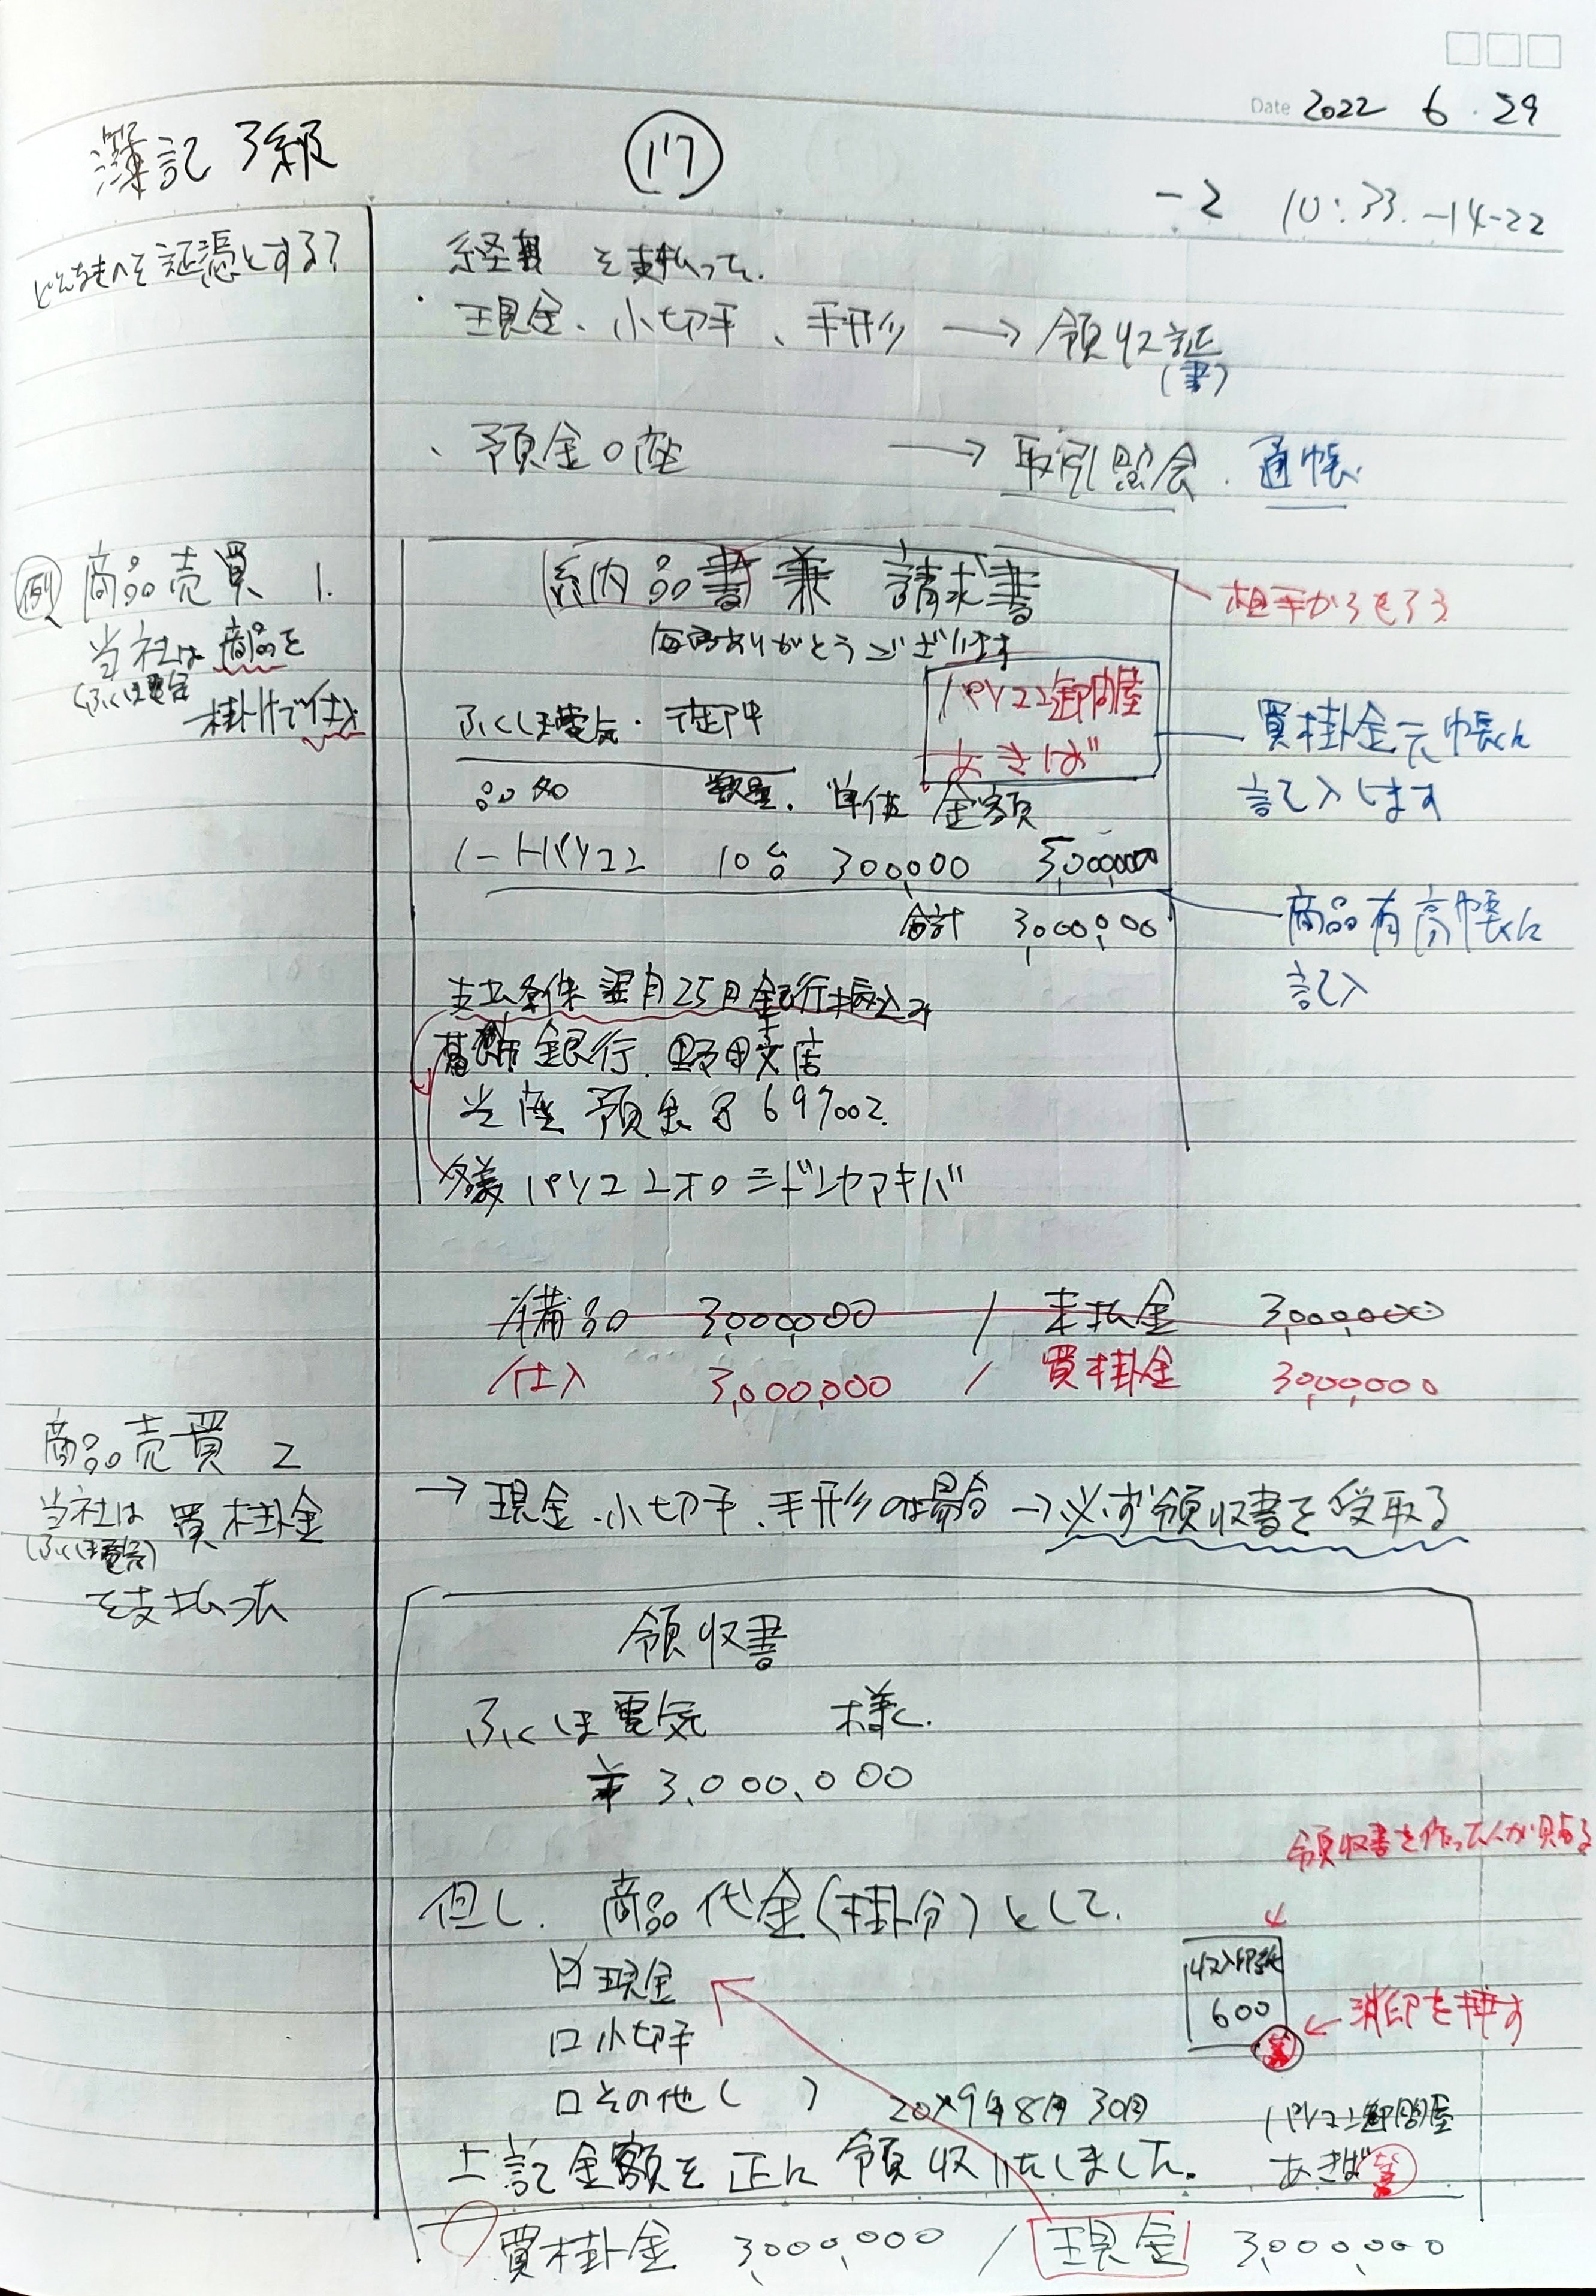 Date 2022 6.29
簿記 3級
17
-2 10:33.-14-22
どんなものを証憑とする?
経費を支払った.
・現金、小切手、手形 → 領収証
(書)
・預金口座 → 取引照会.通帳.
例 商品売買 1.
当社は商品を
(ふくしま電気
掛けで仕入
(納品書)兼 請求書
相手からもらう
毎度ありがとうございます
ふくしま電気.御中
パソコン卸問屋
あきば
買掛金元帳に
記入します
品名 数量. 単価 金額
ノートパソコン 10台 300,000 3,000,000
合計 3,000,000
商品有高帳に
記入
支払条件 翌月25日銀行振込み
葛飾銀行.野田支店
当座預金 697002.
名義 パソコンオロシドンヤアキバ
備品 3,000,000 / 未払金 3,000,000
仕入 3,000,000 / 買掛金 3,000,000
商品売買 2
当社は買掛金
(ふくしま電気)
を支払った
→ 現金.小切手.手形の場合 → 必ず領収書を受取る
領収書
ふくしま電気 様.
¥ 3,000,000
領収書を作った人が貼る
但し. 商品代金(掛分)として.
☑現金
□小切手
□その他( )
収入印紙
600
←消印を押す
20×9年8月30日
パソコン卸問屋
あきば
上記金額を正に領収いたしました.
買掛金 3,000,000 / 現金 3,000,000